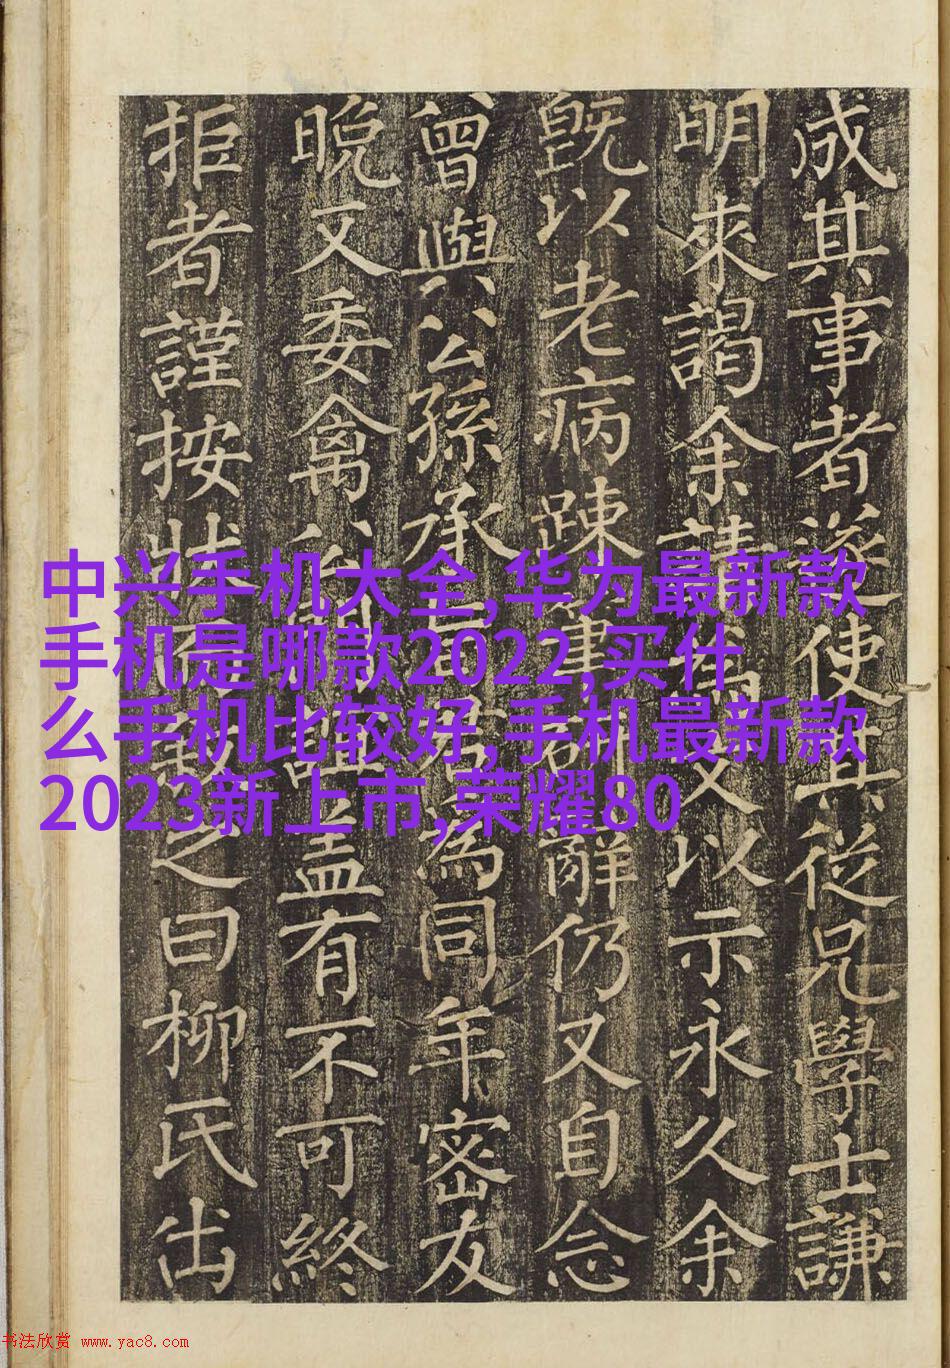 成其事者遂使其從兄學士謙
明來謁余請為文以示永久余
旣以老病踈辭仍又自念
曾與公孫承為同年密友
晚又委禽誼盖有不可終
拒者謹按狀之曰柳氏出
中兴手机大全,华为最新款
手机是哪款2022,买什
么手机比较好,手机最新款
2023新上市,荣耀80
书法欣赏 www.yac8.com